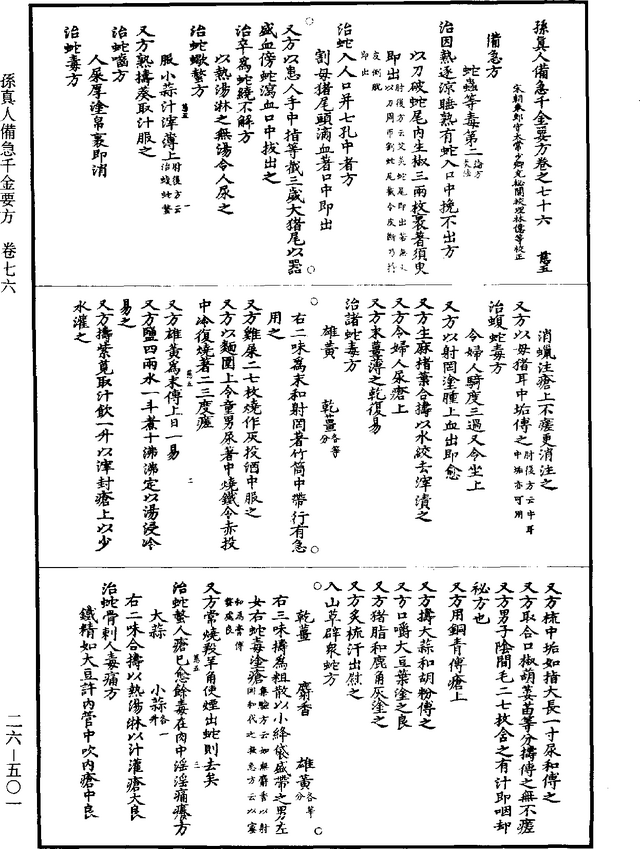 孫真人備急千金要方卷之七十六 慧五
宋朝奉郎守太常少卿充秘閣校理林億等校正
備急方
蛇蟲等毒第二論方灸法
治因熱逐涼睡熟有蛇入口中挽不出方
以刀破蛇尾內生椒三兩枚裹著須臾
即出肘後方云艾灸蛇尾即出若無火以刀周帀割蛇尾截令皮斷乃將皮倒脫即出
治蛇入人口并七孔中者方
割母猪尾頭瀝血著口中即出
又方以患人手中指等截三歲大猪尾以器
盛血傍蛇瀉血口中拔出之
治卒為蛇繞不解方
以熱湯淋之無湯令人尿之
治蛇蠍螫方
服小蒜汁滓薄上肘後方云治蝮蛇螫
又方熟擣葵取汁服之
治蛇嚙方
人屎厚塗帛裹即消
治蛇毒方
消蝋注瘡上不瘥更消注之
又方以母猪耳中垢傅之肘後方云牛耳中垢亦可用
治蝮蛇毒方
令婦人騎度三過又令坐上
又方以射罔塗腫上血出即愈
又方生麻楮葉合擣以水絞去滓漬之
又方令婦人尿瘡上
又方末薑薄之乾復易
治諸蛇毒方
雄黃 乾薑各等分
右二味為末和射罔著竹筒中帶行有急
用之
又方雞屎二七枚燒作灰投酒中服之
又方以麵圍上令童男尿著中燒鐵令赤投
中冷復燒著二三度瘥
又方雄黃為末傅上日一易
又方鹽四兩水一斗煮十沸沸定以湯浸冷
易之
又方擣紫莧取汁飲一升以滓封瘡上以少
水灌之
又方梳中垢如指大長一寸尿和傅之
又方取合口椒葫荽苗等分擣傅之無不瘥
又方男子陰間毛二七枚含之有汁即咽却
秘方也
又方用銅青傅瘡上
又方擣大蒜和胡粉傅之
又方口嚼大豆葉塗之良
又方猪脂和鹿角灰塗之
又方炙梳汗出慰之
入山草辟衆蛇方
乾薑 麝香 雄黃各等分
右三味擣為粗散以小絳袋盛帶之男左
女右蛇毒塗瘡
又方常燒羖羊角使煙出蛇則去矣
治蛇螫人瘡已愈餘毒在肉中淫淫痛癢方
大蒜 小蒜各一升
右二味合擣以熱湯淋以汁灌瘡大良
治蛇骨刺人毒痛方
鐵精如大豆許內管中吹內瘡中良
孫真人備急千金要方 卷七六
二六—五〇一